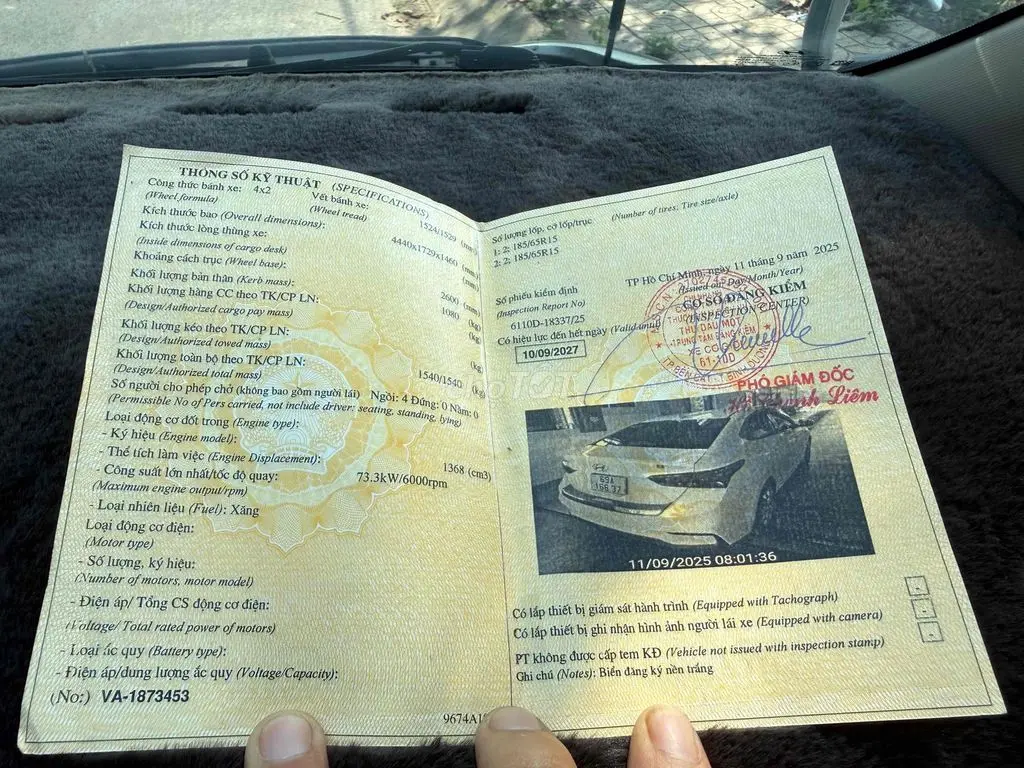 THÔNG SỐ KỸ THUẬT (SPECIFICATIONS)
Công thức bánh xe: 4x2 Vết bánh xe: 1524/1529 (mm)
(Wheel formula) (Wheel tread)
Kích thước bao (Overall dimensions): 4440x1729x1460 (mm)
Kích thước lòng thùng xe: (mm)
(Inside dimensions of cargo desk)
Khoảng cách trục (Wheel base): 2600 (mm)
Khối lượng bản thân (Kerb mass): 1080 (kg)
Khối lượng hàng CC theo TK/CP LN: (kg)
(Design/Authorized cargo pay mass)
Khối lượng kéo theo TK/CP LN: (kg)
(Design/Authorized towed mass)
Khối lượng toàn bộ theo TK/CP LN: 1540/1540 (kg)
(Design/Authorized total mass)
Số người cho phép chở (không bao gồm người lái) Ngồi: 4 Đứng: 0 Nằm: 0
(Permissible No of Pers carried, not include driver: seating, standing, lying)
Loại động cơ đốt trong (Engine type):
- Ký hiệu (Engine model):
- Thể tích làm việc (Engine Displacement): 1368 (cm3)
- Công suất lớn nhất/tốc độ quay: 73.3kW/6000rpm
(Maximum engine output/rpm)
- Loại nhiên liệu (Fuel): Xăng
Loại động cơ điện:
(Motor type)
- Số lượng, ký hiệu:
(Number of motors, motor model)
- Điện áp/ Tổng CS động cơ điện:
(Voltage/ Total rated power of motors)
- Loại ắc quy (Battery type):
- Điện áp/dung lượng ắc quy (Voltage/Capacity):
(No:) VA-1873453
Số lượng lốp, cỡ lốp/trục (Number of tires; Tire size/axle)
1: 2; 185/65R15
2: 2; 185/65R15
TP Hồ Chí Minh, ngày 11 tháng 9 năm 2025
(Issued on: Day/Month/Year)
Số phiếu kiểm định
(Inspection Report No)
CƠ SỞ ĐĂNG KIỂM
(INSPECTION CENTER)
6110D-18337/25
Có hiệu lực đến hết ngày (Valid until)
10/09/2027
THỦ DẦU MỘT
TRUNG TÂM ĐĂNG KIỂM
XE CƠ GIỚI
61-10D
PHÓ GIÁM ĐỐC
Thanh Liêm
11/09/2025 08:01:36
Có lắp thiết bị giám sát hành trình (Equipped with Tachograph)
Có lắp thiết bị ghi nhận hình ảnh người lái xe (Equipped with camera)
PT không được cấp tem KĐ (Vehicle not issued with inspection stamp)
Ghi chú (Notes): Biển đăng ký nền trắng